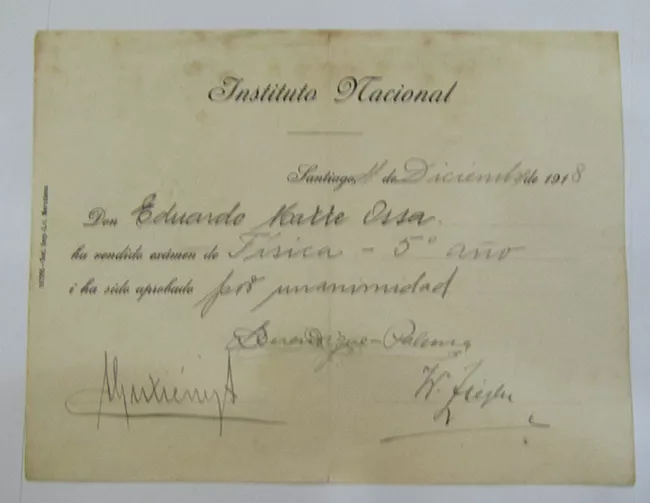 Instituto Nacional
Santiago, de Diciembre de 1918
Don Eduardo Matte Ossa.
ha rendido exámen de Física - 5° año
i ha sido aprobado por unanimidad
W. Ziegler